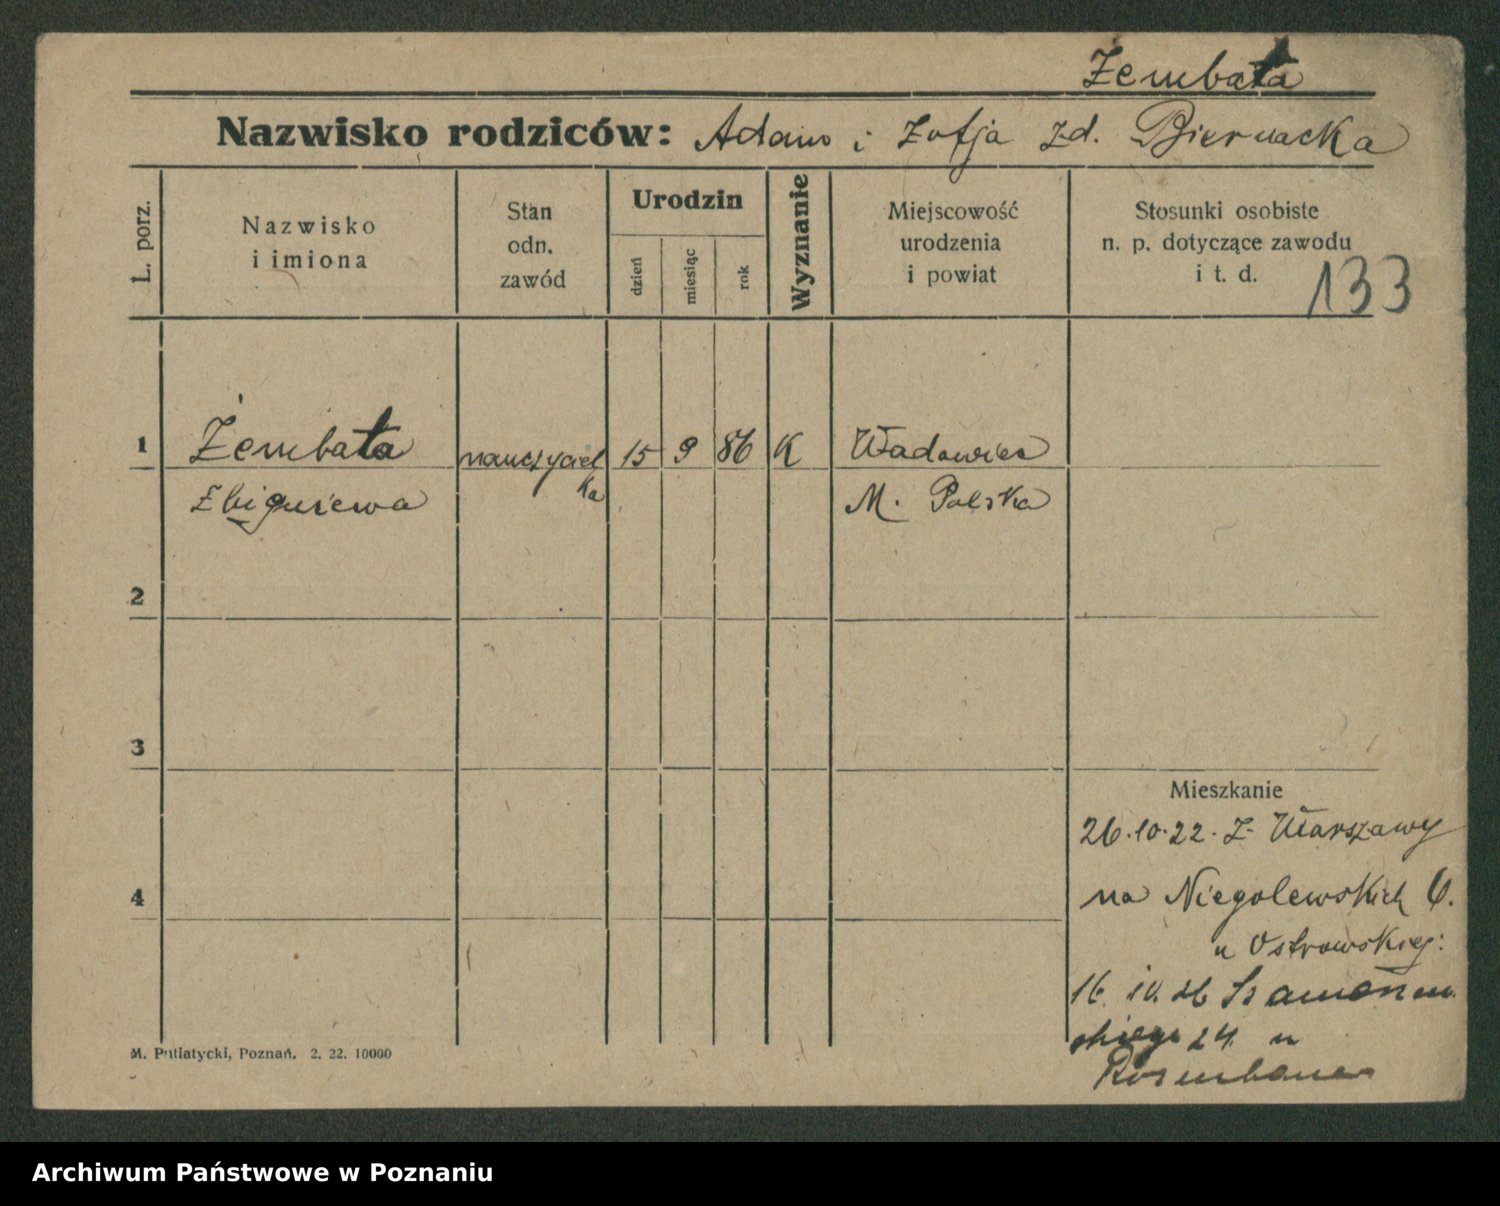 Żembata
Nazwisko rodziców: Adam i Zofja zd. Biernacka
L. porz.
Nazwisko
i imiona
Stan
odn.
zawód
Urodzin
dzień
miesiąc
rok
Wyznanie
Miejscowość
urodzenia
i powiat
Stosunki osobiste
n. p. dotyczące zawodu
i t. d.
133
1 Żembata nauczyciel 15 9 86 K Wadowice
ka
Zbigniewa M. Polska
2
3
4
Mieszkanie
26.10.22. Z Warszawy
na Niegolewskich 6.
u Ostrowskiej:
16. 10. 26
24. u
M. Putiatycki, Poznań. 2. 22. 10000
Archiwum Państwowe w Poznaniu